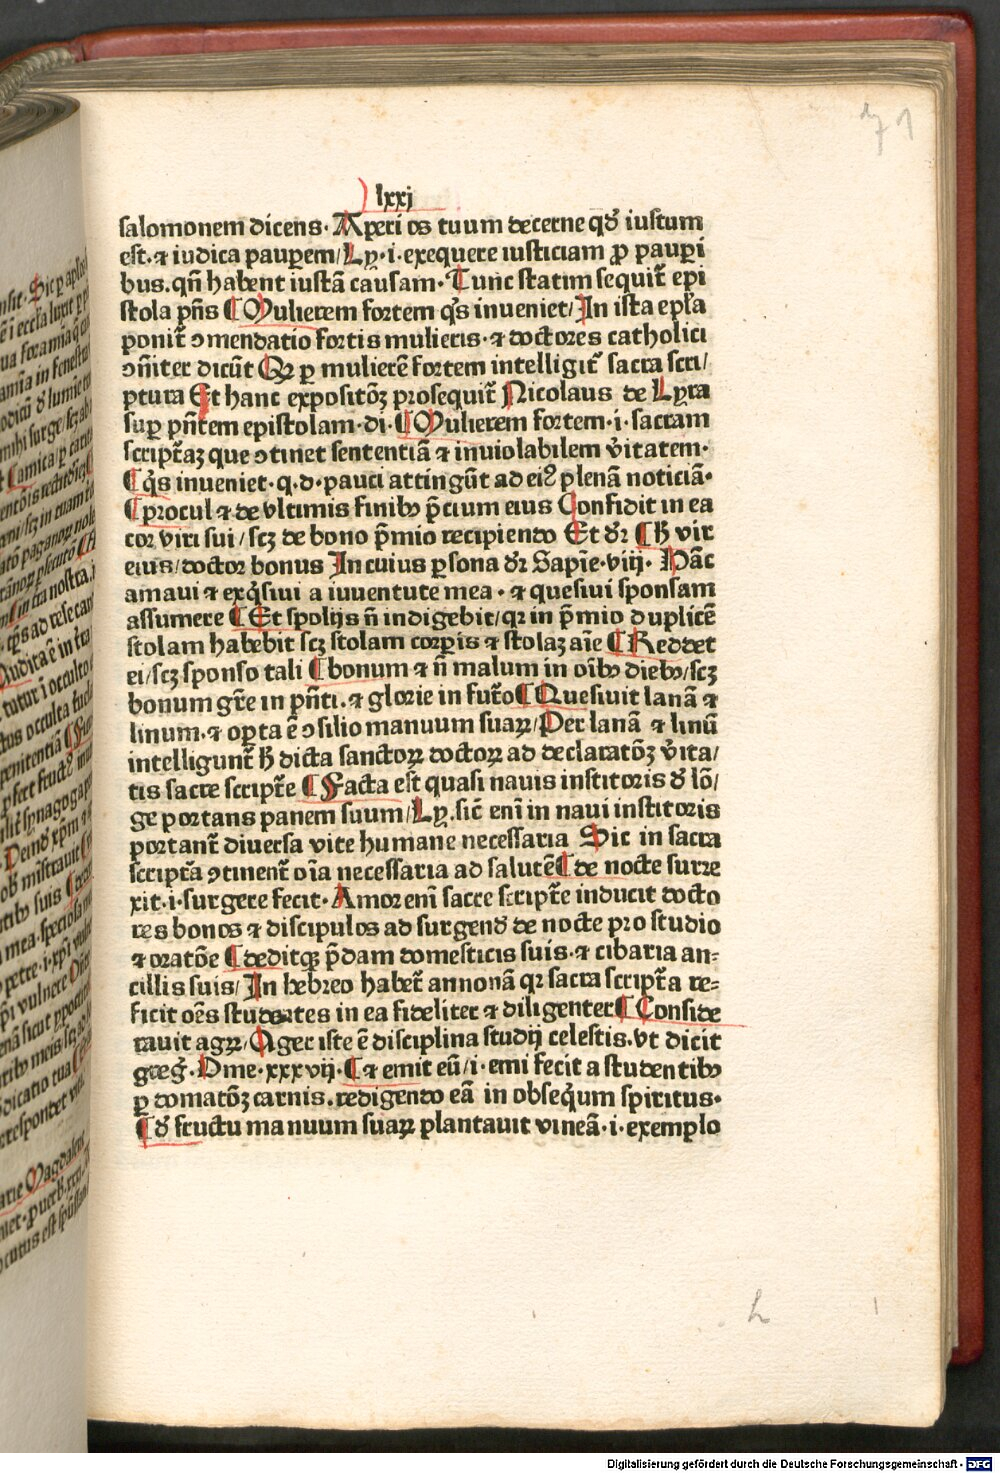 71
lxxj
salomonem dicens· Aperi os tuum decerne qđ iustum
est· ⁊ iudica pauꝑem/ Ly·i·exequere iusticiam ꝓ pauꝑi
bus. qñ habent iustā causam· Tunc statim sequit̃ epi
stola pñs ¶ Mulierem fortem q̇s inueniet/ In ista epl̃a
ponit̃ ↄmendatio fortis mulieris· ⁊ doctores catholici
ↄm̃iter dicūt Qꝛ ꝑ mulierē fortem intelligit̃ sacra scri/
ptura Et hanc expositōꝫ prosequit̃ Nicolaus de Lyra
suꝑ pñtem epistolam·di· ¶ Mulierem fortem·i·sacram
script̃aꝫ que ↄtinet sententiā ⁊ inuiolabilem v̓itatem·
¶ q̇s inueniet·q·d·pauci attingūt ad eiꝰ plenā noticiā·
¶ procul ⁊ de vltimis finibꝰ p̄cium eius Confidit in ea
cor viri sui/scꝫ de bono p̄mio recipiendo Et dꝛ̄ ¶ h̄ vir
eius/doctor bonus In cuius ꝑsona dꝛ̄ Sapīe·viij· Hāc
amaui ⁊ exq̇siui a iuuentute mea· ⁊ quesiui sponsam
assumere ¶ Et spolijs ñ indigebit/qꝛ in p̄mio duplicē
stolam habebit scꝫ stolam corꝑis ⁊ stolaꝫ aīe ¶ Reddet
ei/scꝫ sponso tali ¶ bonum ⁊ ñ malum in oībꝰ diebꝰ/scꝫ
bonum gr̄e in pñti.⁊ glorie in fut̃o ¶ Quesiuit lanā ⁊
linum·⁊ oꝑta ē ↄsilio manuum suaꝝ/ Per lanā ⁊ linū
intelligunt̃ h̄ dicta sanctoꝝ doctoꝝ ad declaratōꝫ v̓ita/
tis sacre script̃e ¶ Facta est quasi nauis institoris đ lō/
ge portans panem suum/ Ly.sic̄ enī in naui institoris
portant̃ diuersa vite humane necessaria Sic in sacra
script̃a ↄtinent̃ oīa necessaria ad salutē ¶ de nocte surre
xit·i·surgere fecit· Amor enī sacre script̃e inducit docto
res bonos ⁊ discipulos ad surgenđ de nocte pro studio
⁊ oratōe ¶ deditqꝫ p̄dam domesticis suis·⁊ cibaria an⸗
cillis suis/ In hebreo habet̃ annonā qꝛ sacra script̃a re⸗
ficit oēs studentes in ea fideliter ⁊ diligenter ¶ Conside
rauit agꝝ/ Ager iste ē disciplina studij celestis.vt dicit
greg̃· Ome·xxxvij· ¶ ⁊ emit eū/i·emi fecit a studentibꝰ
ꝑ domatōꝫ carnis·redigendo eā in obseq̇um spiritus·
¶ đ fructu manuum suaꝝ plantauit vineā·i·exemplo
h 1
Digitalisierung gefördert durch die Deutsche Forschungsgemeinschaft · DFG